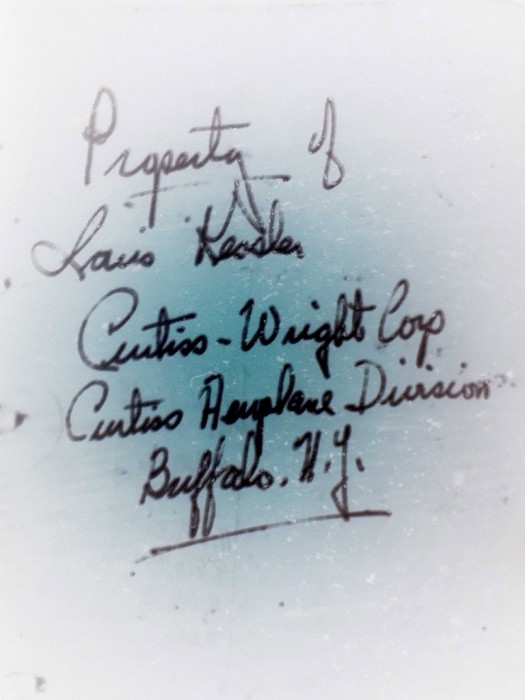 Property of
Louis Kessler
Curtiss-Wright Corp
Curtiss Aeroplane Division
Buffalo. N.Y.